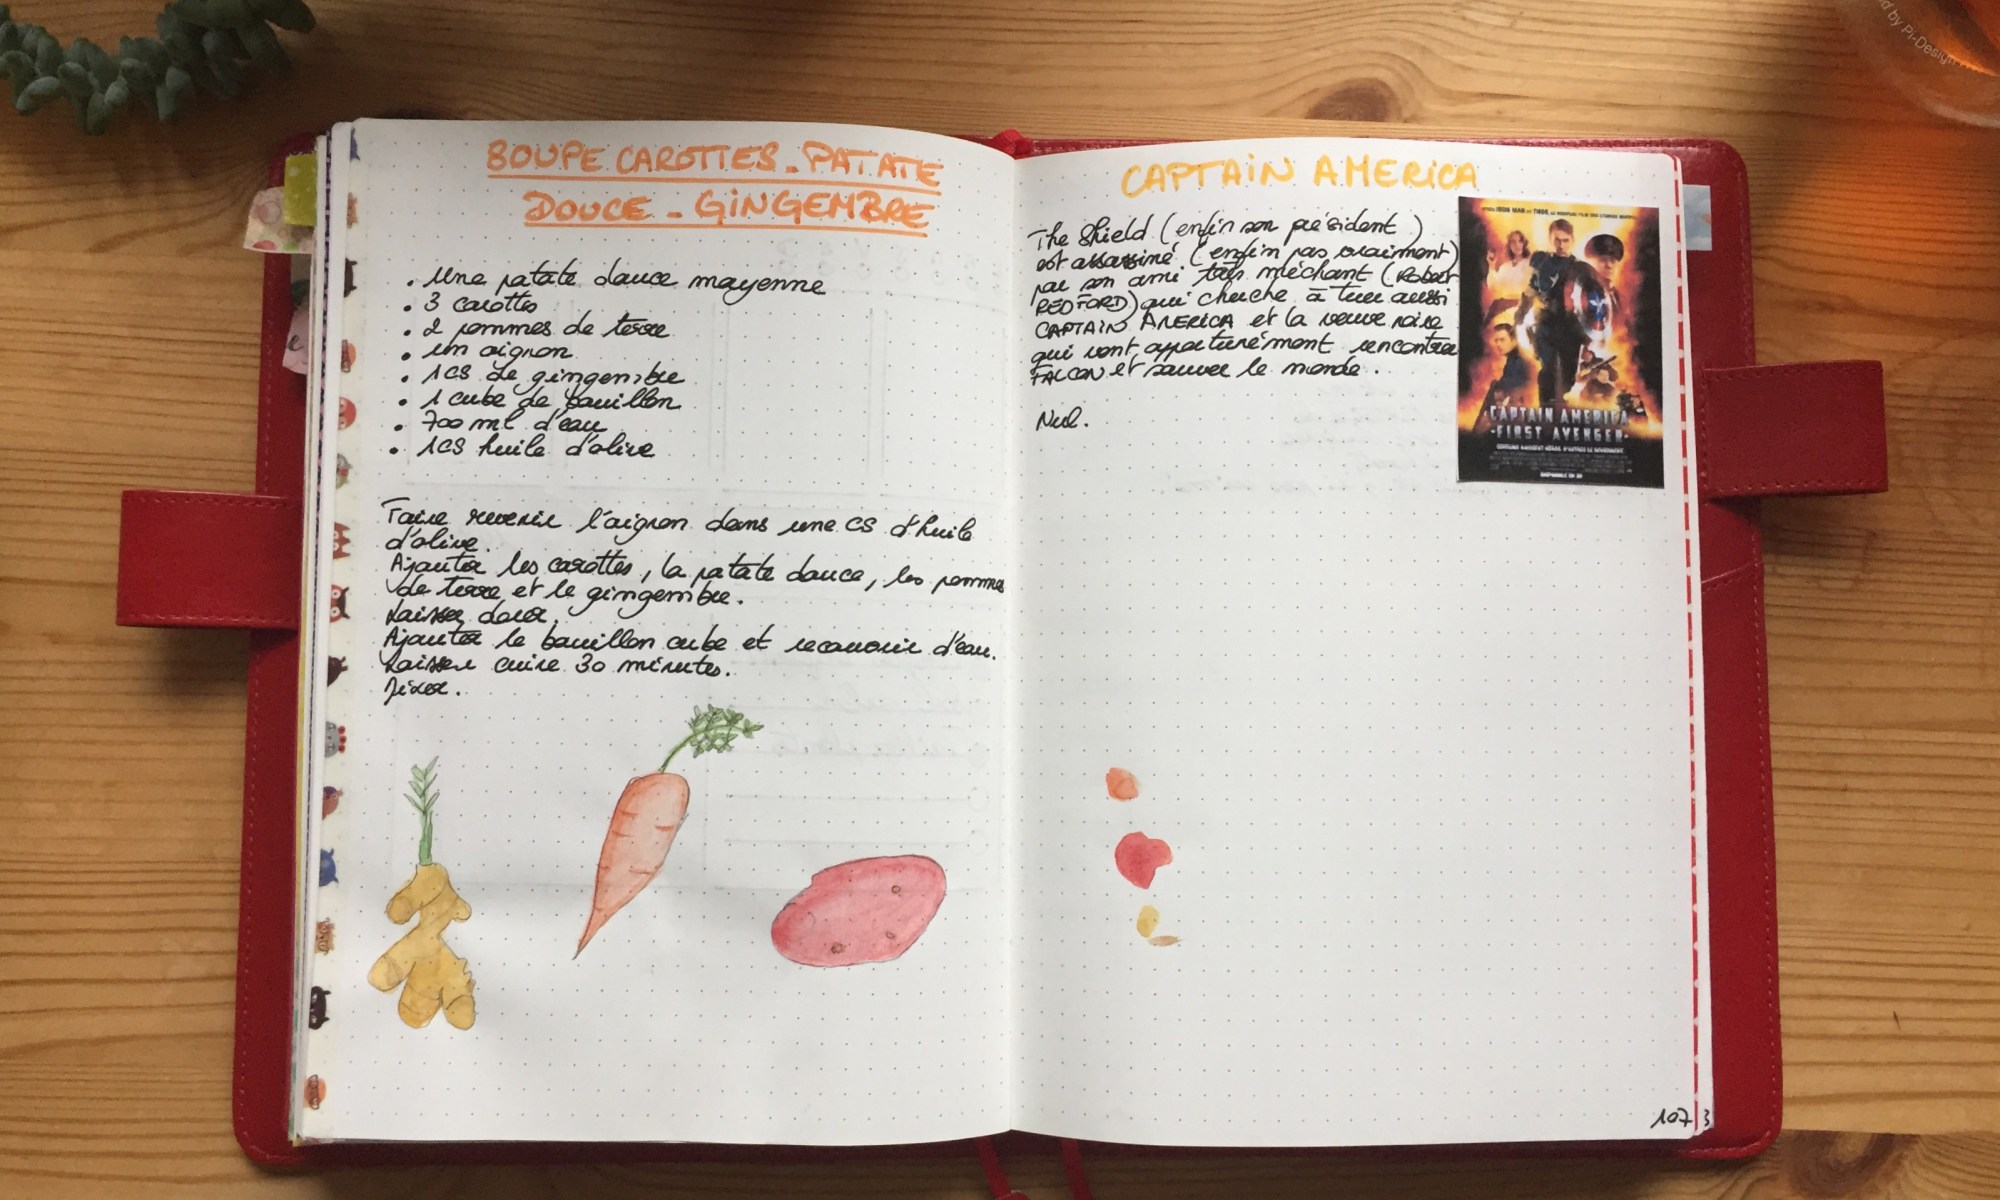 SOUPE CAROTTES - PATATE
DOUCE - GINGEMBRE
• Une patate douce moyenne
• 3 carottes
• 2 pommes de terre
• un oignon
• 1CS de gingembre
• 1 cube de bouillon
• 700 ml d'eau
• 1CS huile d'olive
Faire revenir l'oignon dans une CS d'huile
d'olive.
Ajouter les carottes, la patate douce, les pommes
de terre et le gingembre.
Laisser dorer.
Ajouter le bouillon cube et recouvrir d'eau.
Laisser cuire 30 minutes.
Mixer.
CAPTAIN AMERICA
The Shield (enfin son président)
est assassiné (enfin pas vraiment)
par son ami très méchant (Robert
REDFORD) qui cherche à tuer aussi
CAPTAIN AMERICA et la veuve noire
qui vont opportunément rencontrer
FALCON et sauver le monde.
Nul.
CAPTAIN AMERICA
- FIRST AVENGER -
107
3
by Pi-Design